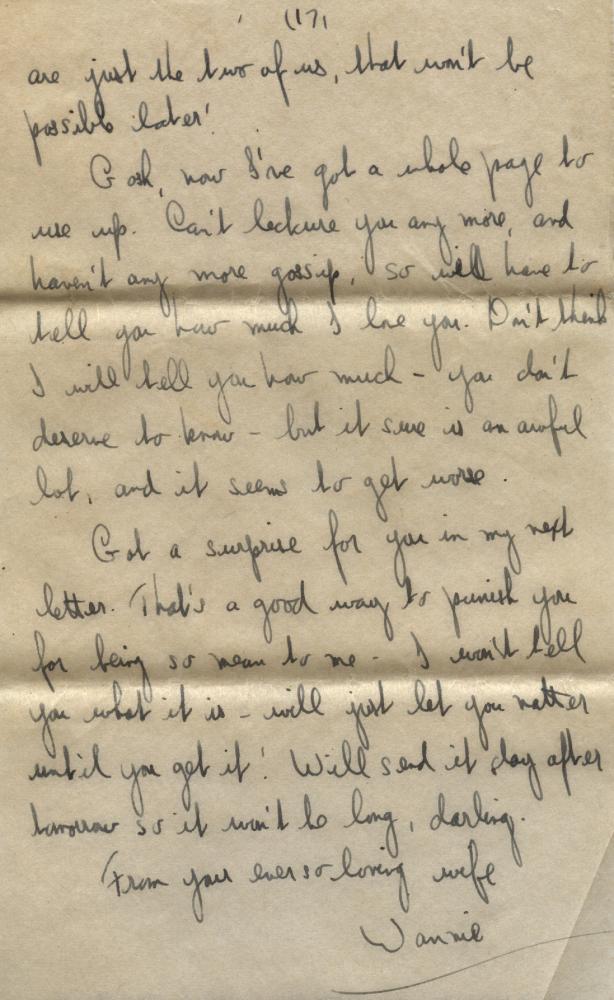 (17)
are just the two of us, that won't be
possible later!
Gosh, now I've got a whole page to
use up. Can't lecture you any more, and
haven't any more gossip, so will have to
tell you how much I love you. Don't think
I will tell you how much - you don't
deserve to know - but it sure is an awful
lot, and it seems to get worse.
Got a surprise for you in my next
letter. That's a good way to punish you
for being so mean to me - I won't tell
you what it is - will just let you
until you get it! Will send it day after
tomorrow so it won't be long, darling.
From your ever so loving wife
Wannie